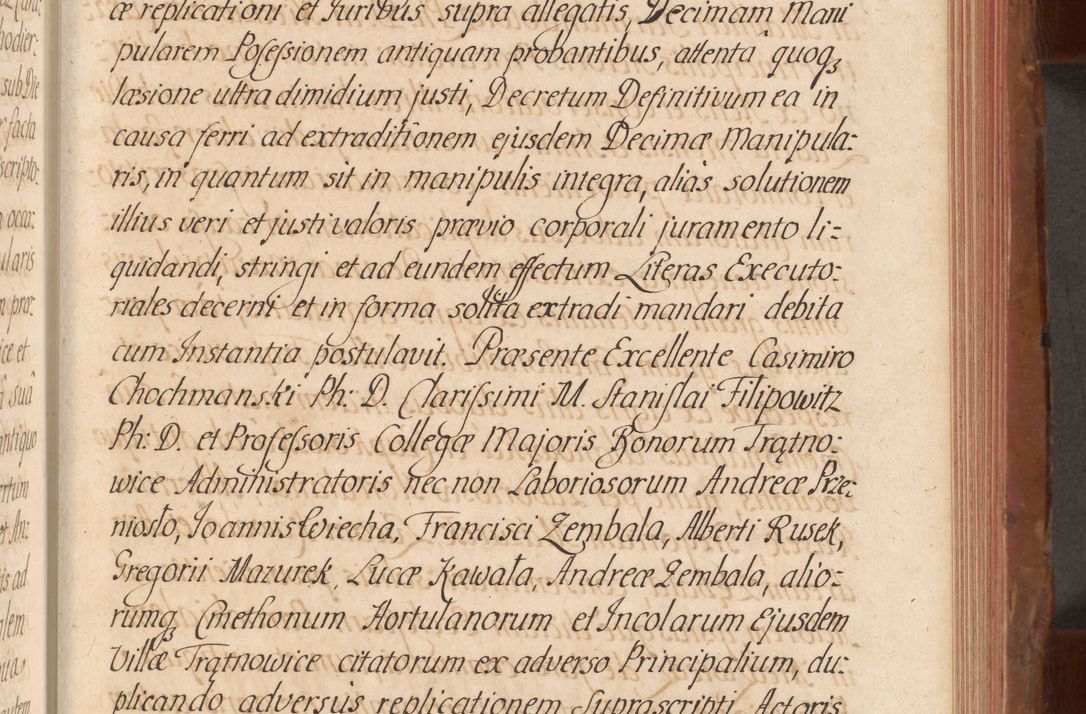 æ replicationi et Juribus supra allegatis, Decimam Mani
pularem Poſeſsionem antiquam probantibus, attentâ quoqȝ
læsione ultra dimidium justi, Decretum Definitivum ea in
causa ferri ad extraditionem ejusdem Decimæ Manipula:
ris, in quantum sit in manipulis integra, alias solutionem
illius veri et justi valoris prævio corporali juramento li:
quidandi, stringi et ad eundem effectum Literas Executo:
riales decerni et in forma solita extradi mandari debita
cum Instantia postulavit. Præsente Excellente Casimiro
Chochmanski Ph: D. Clariſsimi M. Staniſlai Filipowitz
Ph: D. et Profeſsoris Collegæ Majoris Bonorum Trątno:
wice Administratoris nec non Laboriosorum Andreæ Prze:
niosło, Joannis Wiecha, Francisci Zembala, Alberti Rusek,
Gregorii Mazurek, Lucæ Kawała, Andreæ Zembala, alio:
rumqȝ Cmethonum Hortulanorum et Incolarum Ejusdem
Villæ Trątnowice citatorum ex adverso Principalium, du:
plicando adversus replicationem Suprascripti Actoris
hodier:
sub Die
facta
scripto:
occa:
ularis
præ:
ice et
suâ
antiquo
ertum
et An:
is ad